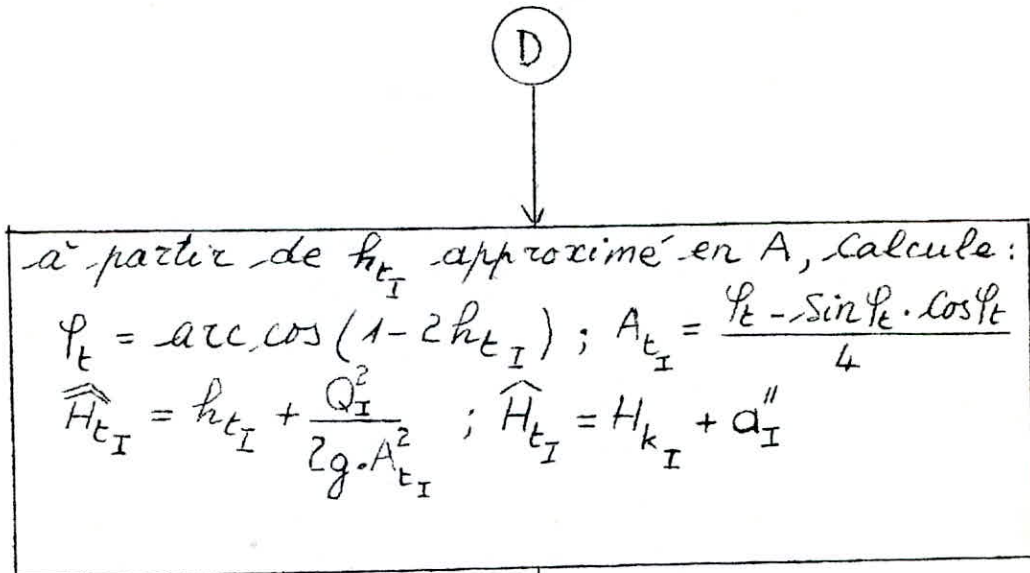 D
à partir de h_{t_I} approximé en A, calcule :
φ_t = arc cos (1 - 2h_{t_I}) ; A_{t_I} = \frac{φ_t - sin φ_t . cos φ_t}{4}
\widehat{\widehat{H}}_{t_I} = h_{t_I} + \frac{Q_I^2}{2g.A_{t_I}^2} ; \widehat{H}_{t_I} = H_{k_I} + a''_I